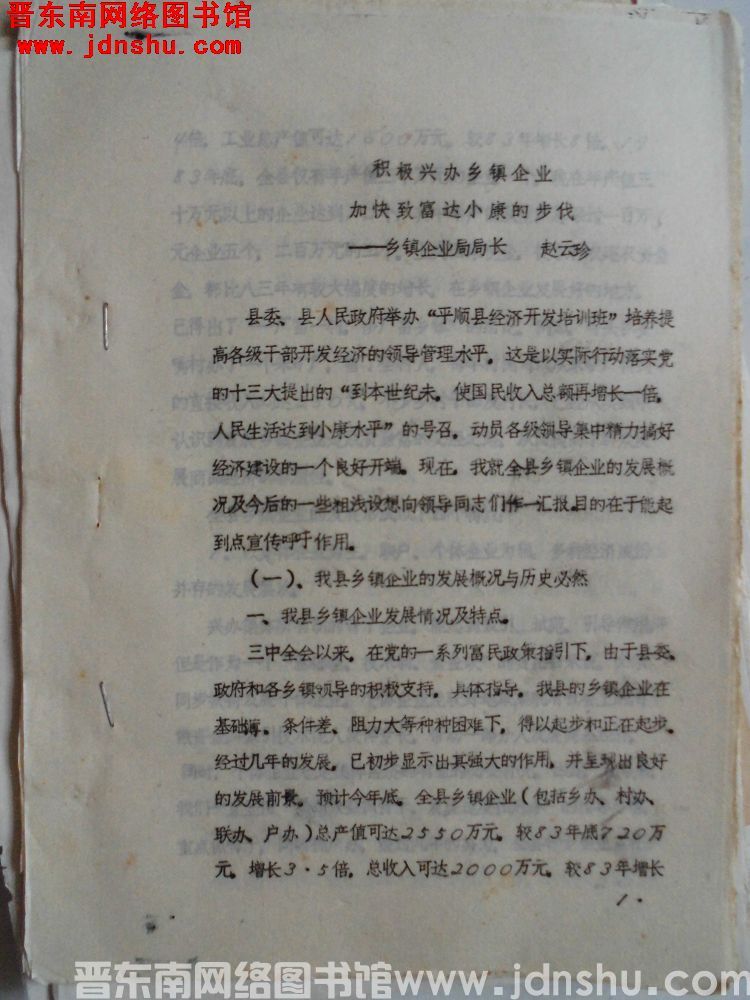 晋东南网络图书馆
www.jdnshu.com
积极兴办乡镇企业
加快致富达小康的步伐
——乡镇企业局局长 赵云珍
县委、县人民政府举办“平顺县经济开发培训班”培养提
高各级干部开发经济的领导管理水平。这是以实际行动落实党
的十三大提出的“到本世纪未。使国民收入总额再增长一倍。
人民生活达到小康水平”的号召。动员各级领导集中精力搞好
经济建设的一个良好开端。现在。我就全县乡镇企业的发展概
况及今后的一些粗浅设想向领导同志们作一汇报。目的在于能起
到点宣传呼吁作用。
(一)、我县乡镇企业的发展概况与历史必然
一、我县乡镇企业发展情况及特点。
三中全会以来。在党的一系列富民政策指引下。由于县委、
政府和各乡镇领导的积极支持。具体指导。我县的乡镇企业在
基础薄。条件差、阻力大等种种困难下。得以起步和正在起步。
经过几年的发展。已初步显示出其强大的作用。并呈现出良好
的发展前景。预计今年底。全县乡镇企业(包括乡办、村办、
联办、户办)总产值可达2550万元。较83年底720万
元。增长3·5倍。总收入可达2000万元。较83年增长
1.
晋东南网络图书馆www.jdnshu.com